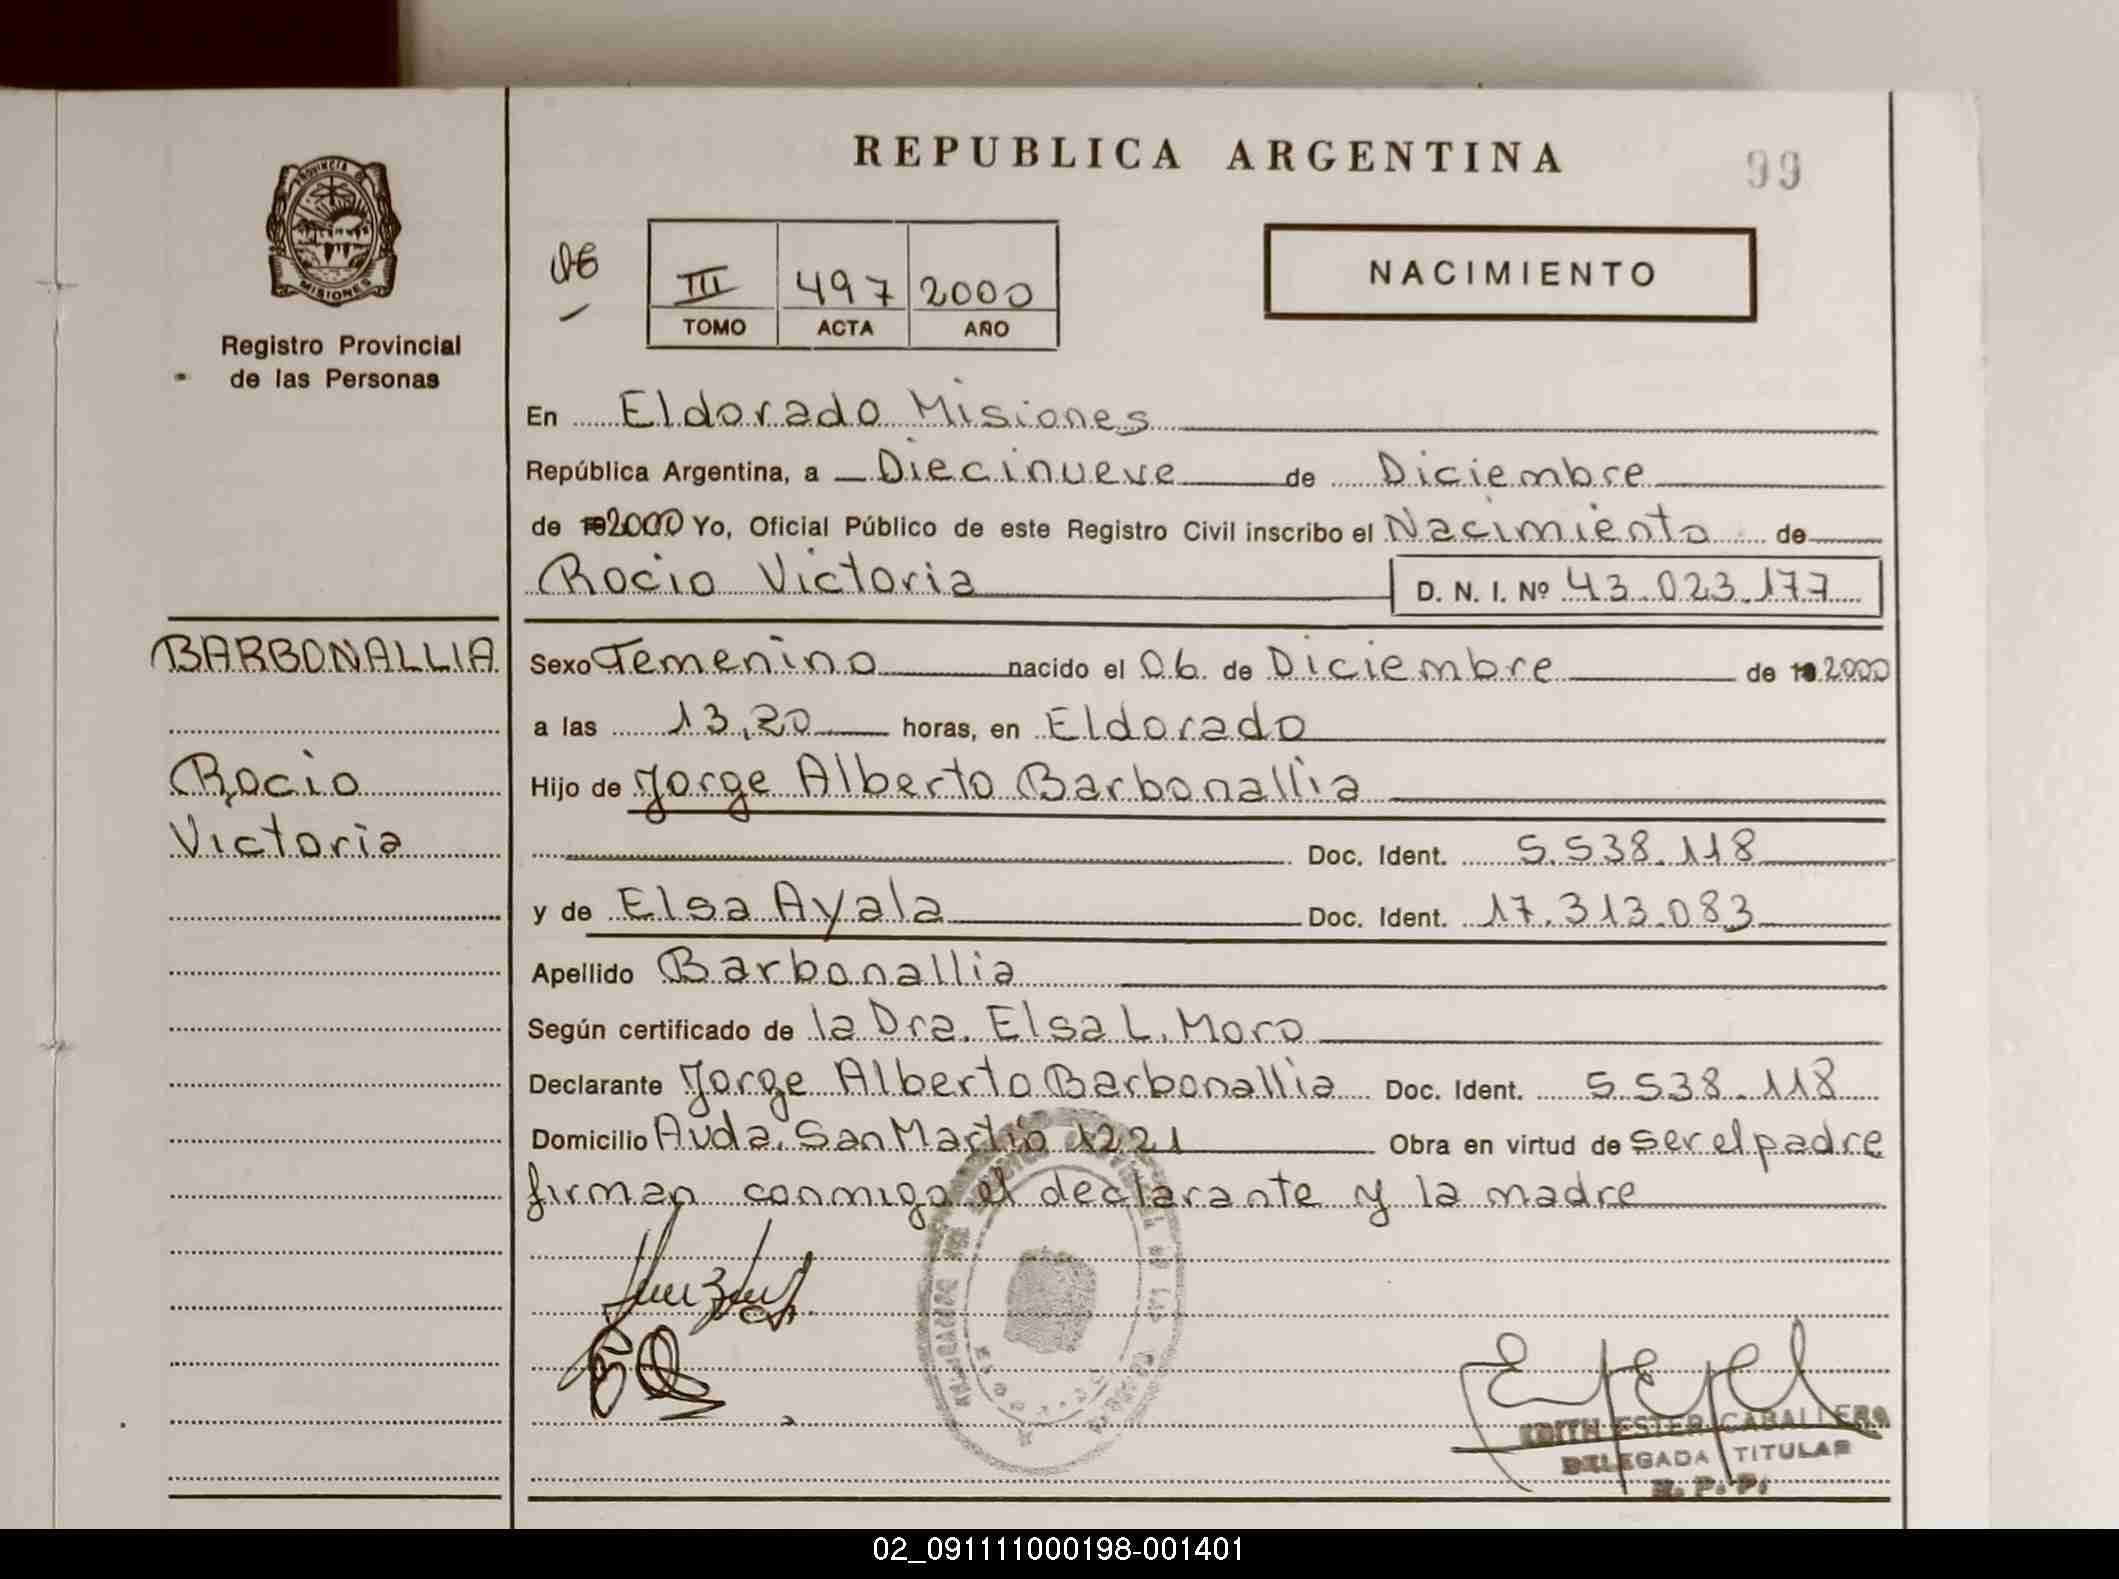 REPUBLICA ARGENTINA
99
PROVINCIA DE
MISIONES
Registro Provincial
de las Personas
NACIMIENTO
III 497 2000
TOMO ACTA AÑO
En Eldorado Misiones
República Argentina, a Diecinueve de Diciembre
de 2000 Yo, Oficial Público de este Registro Civil inscribo el Nacimiento de
Rocio Victoria D. N. I. Nº 43.023.177
BARBONALLIA
Rocio
Victoria
Sexo Femenino nacido el 06 de Diciembre de 2000
a las 13,20 horas, en Eldorado
Hijo de Jorge Alberto Barbonallia
Doc. Ident. 5.538.118
y de Elsa Ayala Doc. Ident. 17.313.083
Apellido Barbonallia
Según certificado de la Dra. Elsa L. Moro
Declarante Jorge Alberto Barbonallia Doc. Ident. 5.538.118
Domicilio Avda. San Martin 1221 Obra en virtud de ser el padre
firman conmigo el declarante y la madre
EDITH ESTER CABALLERO
DELEGADA TITULAR
R. P. P.
02_091111000198-001401